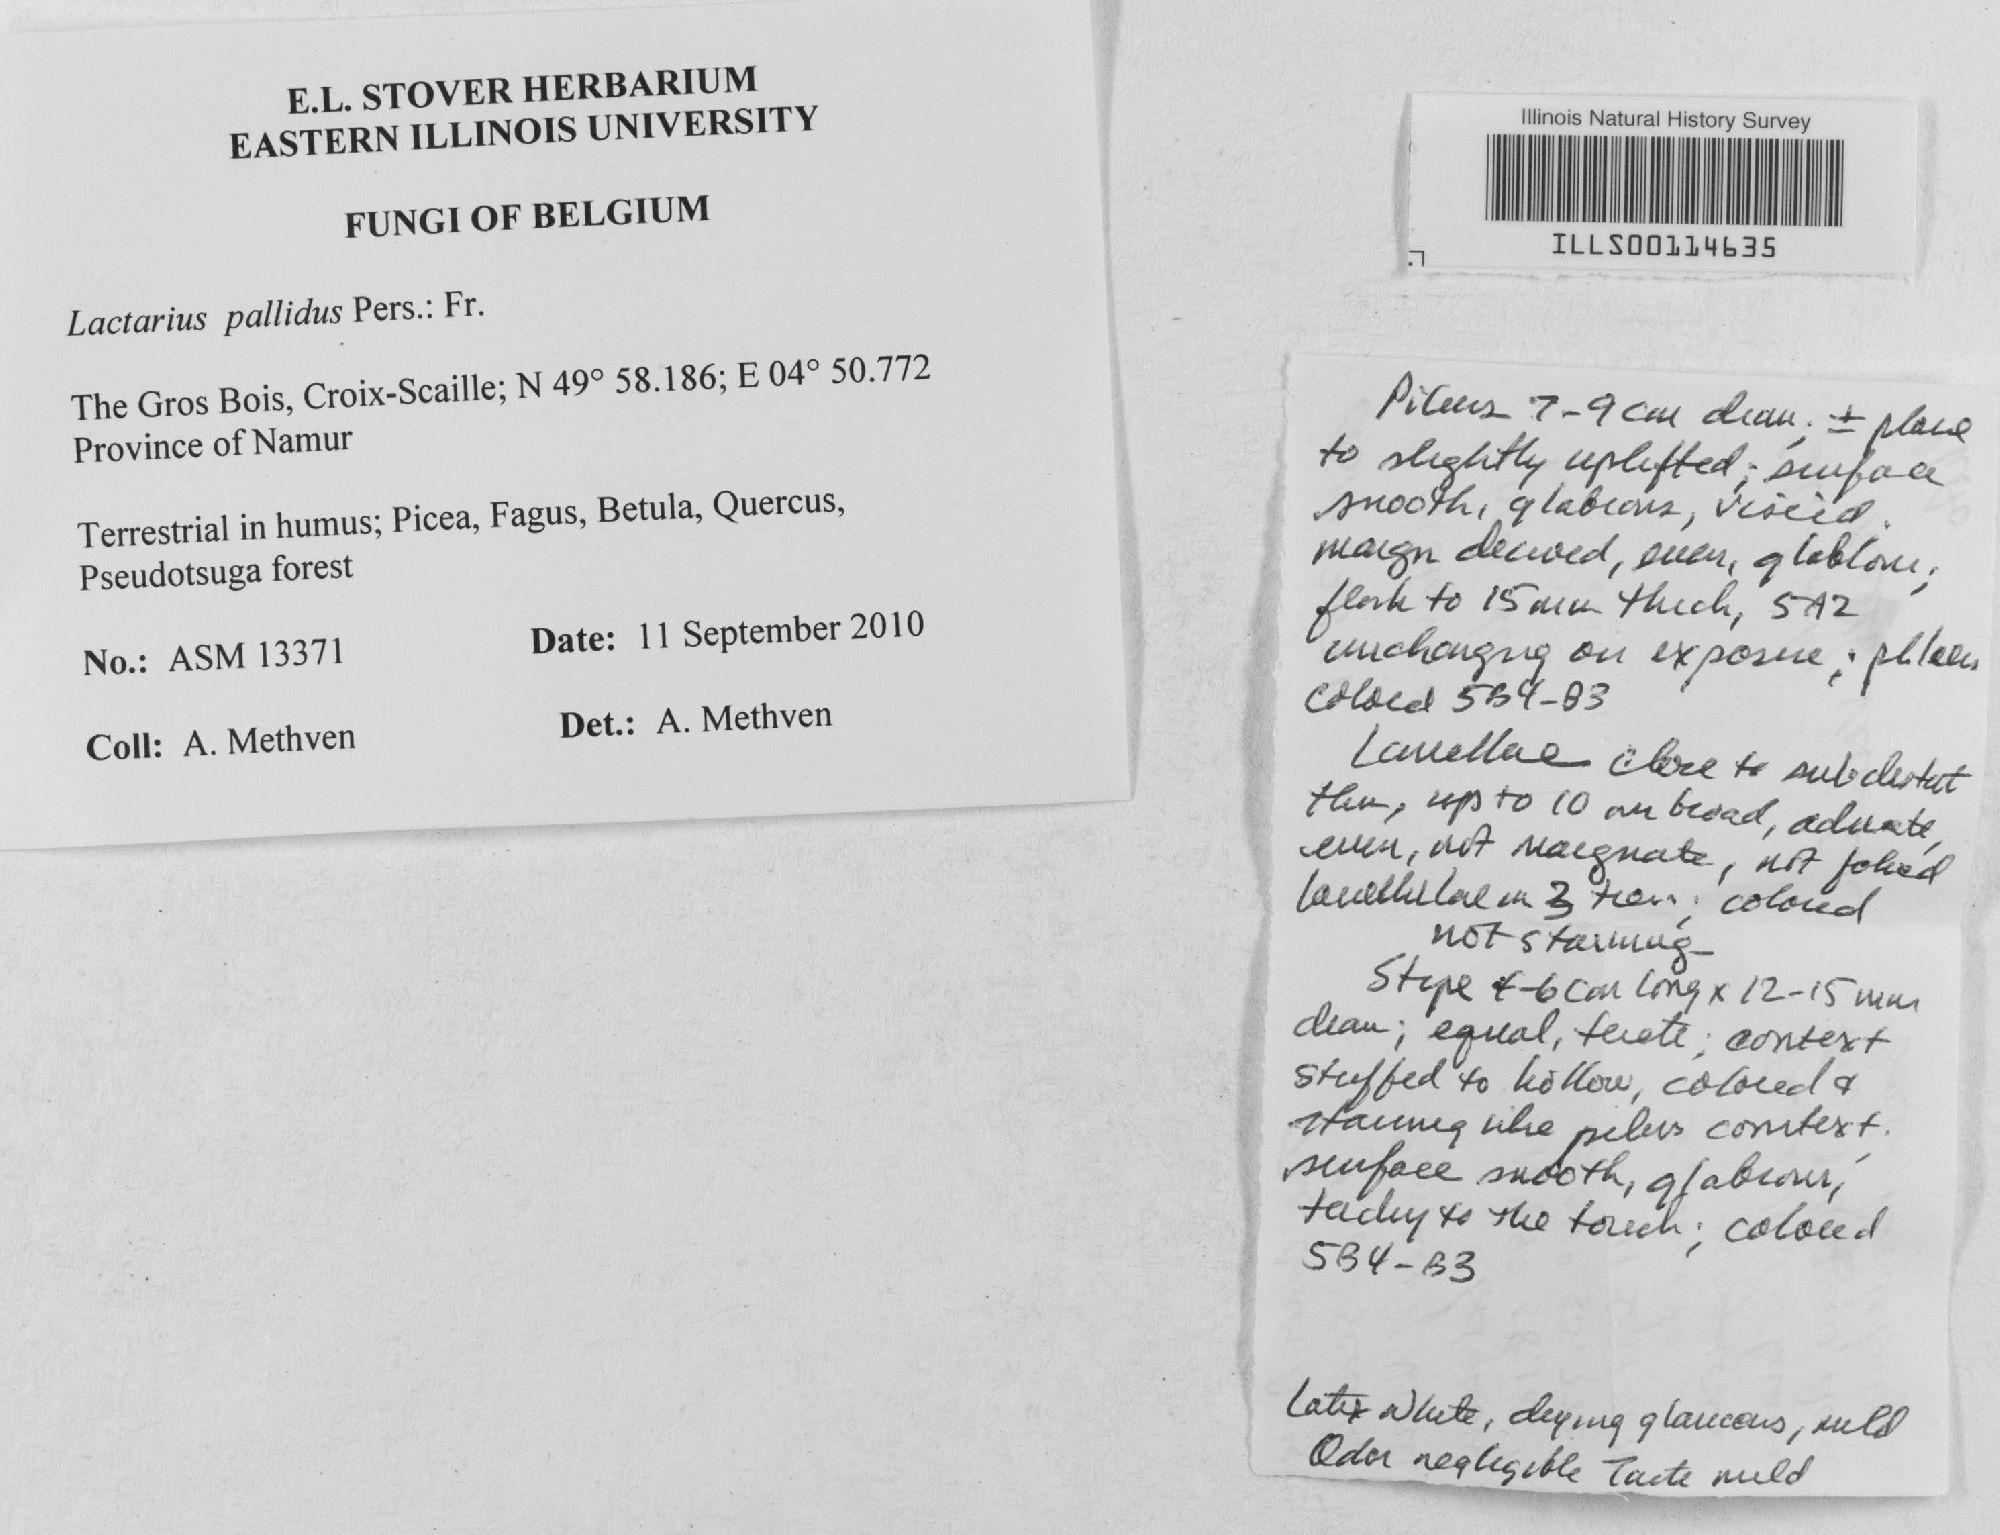 E.L. STOVER HERBARIUM
EASTERN ILLINOIS UNIVERSITY
FUNGI OF BELGIUM
Lactarius pallidus Pers.: Fr.
The Gros Bois, Croix-Scaille; N 49° 58.186; E 04° 50.772
Province of Namur
Terrestrial in humus; Picea, Fagus, Betula, Quercus,
Pseudotsuga forest
No.: ASM 13371 Date: 11 September 2010
Coll: A. Methven Det.: A. Methven
Illinois Natural History Survey
ILLS00114635
Pileus 7-9 cm diam; ± plane
to slightly uplifted; surface
smooth, glabrous, viscid.
margin decurved, even, glabrous;
flesh to 15 mm thick, 5A2
unchanging on exposure; pileus
colored 5B4-B3
Lamellae close to subdistant
thin, up to 10 mm broad, adnate,
even, not marginate, not forked
lamellulae in 3 tiers; colored
not staining
Stipe 4-6 cm long x 12-15 mm
diam; equal, terete; context
stuffed to hollow, colored &
staining like pileus context.
surface smooth, glabrous,
tacky to the touch; colored
5B4-B3
Latex white, drying glaucous, mild
Odor negligible Taste mild